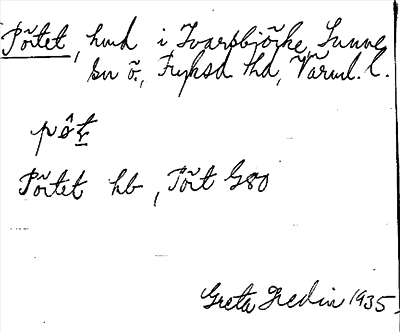 Pörtet, hmd i Ivarsbjörke, Sunne
sn ö., Fryksd. hd, Värml. l.
pøt
Pörtet hb, Pört G80
Greta Hedin 1935.